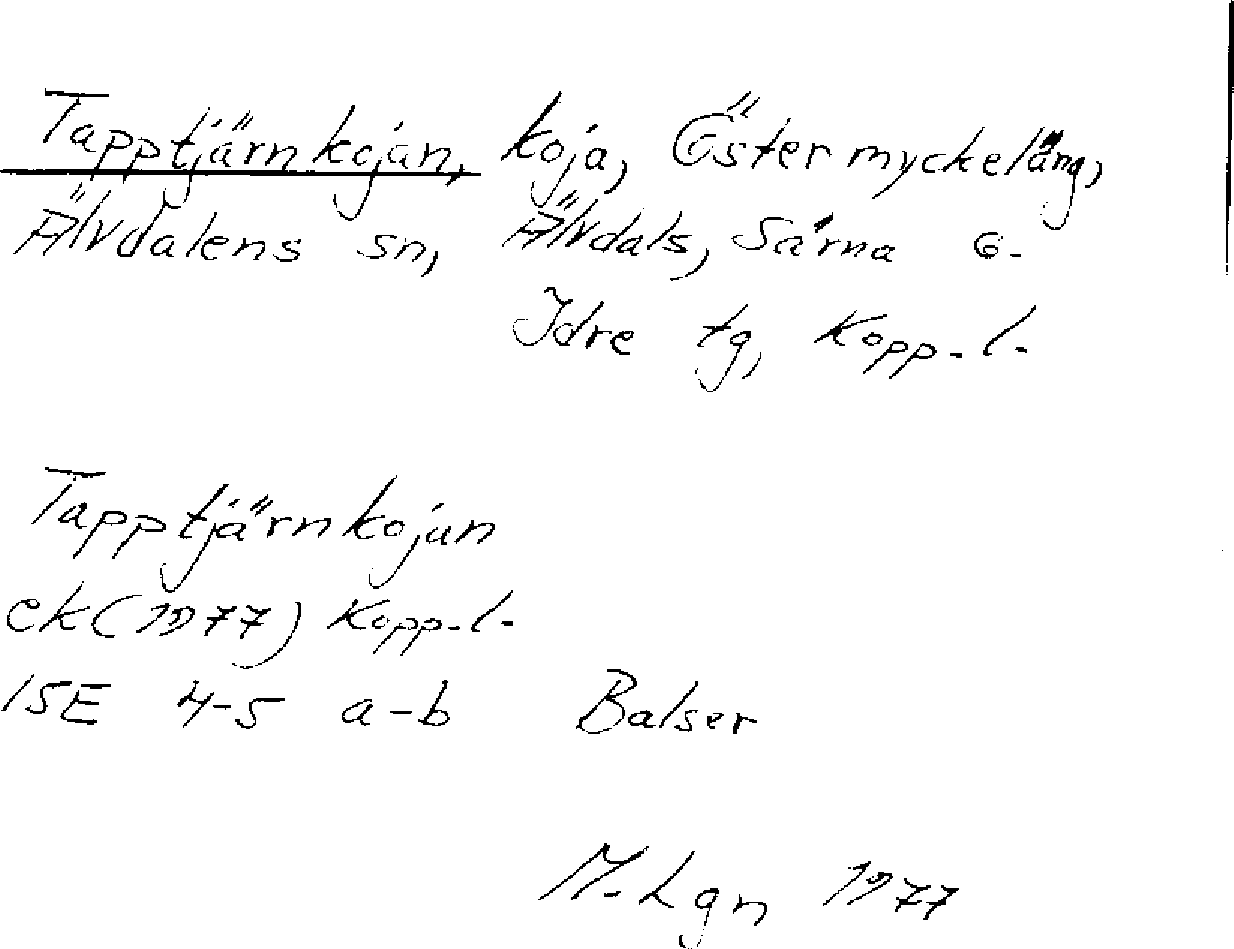 Tapptjärnkojan, koja, Östermyckeläng,
Älvdalens sn, Älvdals, Särna o.
Idre tg, Kopp. l.
Tapptjärnkojan
ek (1977) Kopp. l.
15E 4-5 a-b Balser
M. Lgn 1977